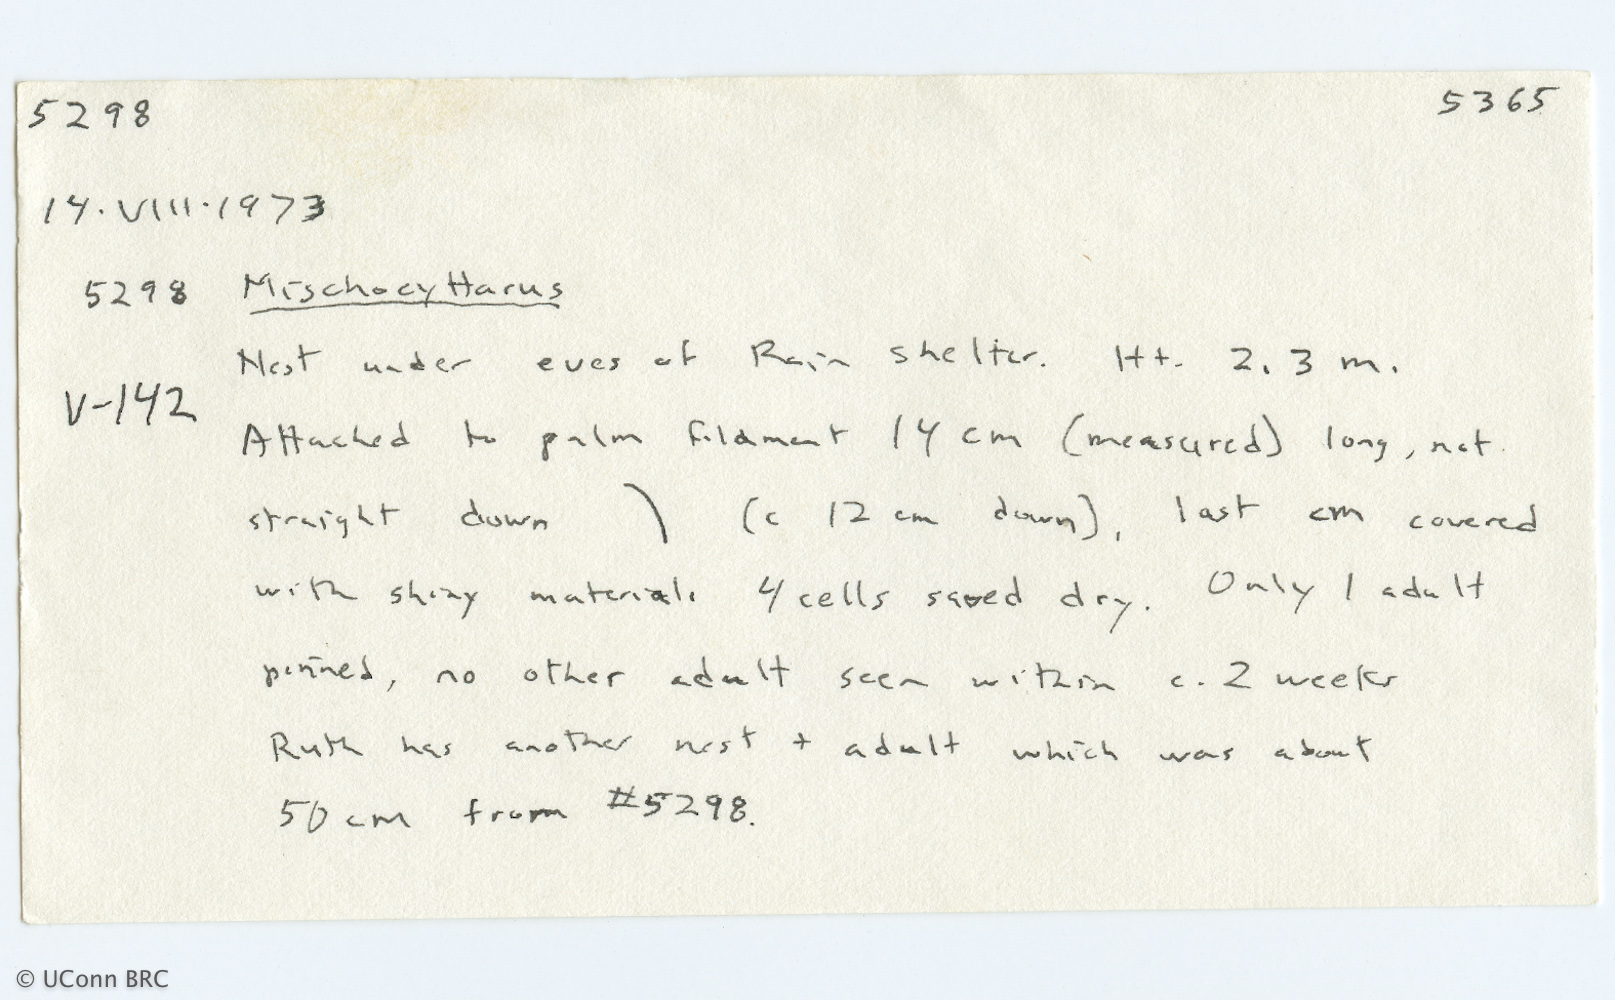 5298 5365
14.VIII.1973
5298 Mischocyttarus
Nest under eves of Rain shelter. Ht. 2.3 m.
V-142
Attached to palm filament 14 cm (measured) long, not
straight down ) (c 12 cm down), last cm covered
with shiny material. 4 cells saved dry. Only 1 adult
pinned, no other adult seen within c. 2 weeks
Ruth has another nest + adult which was about
50 cm from #5298.
© UConn BRC